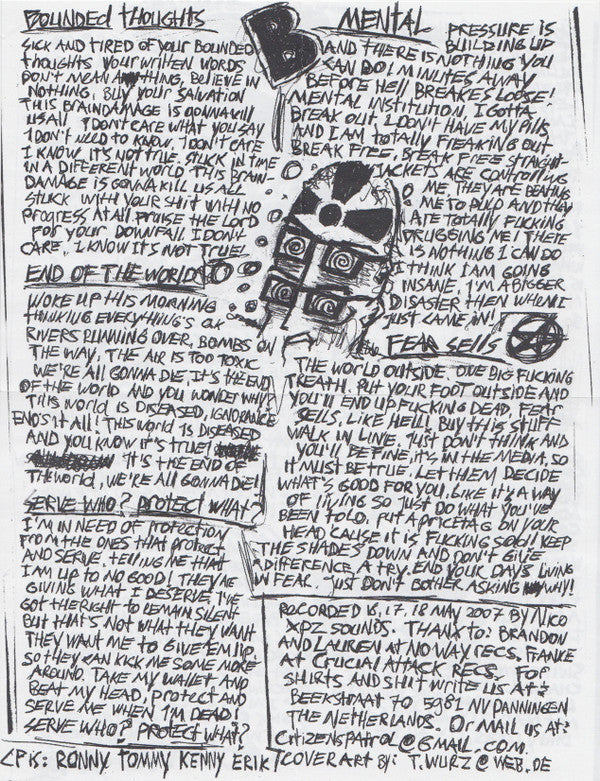 BOUNDED THOUGHTS
SICK AND TIRED OF YOUR BOUNDED
THOUGHTS YOUR WRITTEN WORDS
DON'T MEAN ANYTHING, BELIEVE IN
NOTHING, BUY YOUR SALVATION
THIS BRAINDAMAGE IS GONNA KILL
US ALL I DON'T CARE WHAT YOU SAY
I DON'T NEED TO KNOW. I DON'T CARE
I KNOW IT'S NOT TRUE. STUCK IN TIME
IN A DIFFERENT WORLD THIS BRAIN-
DAMAGE IS GONNA KILL US ALL
STUCK WITH YOUR SHIT WITH NO
PROGRESS AT ALL PRAISE THE LORD
FOR YOUR DOWNFALL I DON'T
CARE, I KNOW IT'S NOT TRUE!
END OF THE WORLD
WOKE UP THIS MORNING
THINKING EVERYTHING'S OK
RIVERS RUNNING OVER, BOMBS ON
THE WAY, THE AIR IS TOO TOXIC
WE'RE ALL GONNA DIE, IT'S THE END
OF THE WORLD AND YOU WONDER WHY?
THIS WORLD IS DISEASED, IGNORANCE
ENDS IT ALL! THIS WORLD IS DISEASED
AND YOU KNOW IT'S TRUE!
IT'S THE END OF
THE WORLD, WE'RE ALL GONNA DIE!
SERVE WHO? PROTECT WHAT?
I'M IN NEED OF PROTECTION
FROM THE ONES THAT PROTECT
AND SERVE. TELLING ME THAT
I AM UP TO NO GOOD! THEY'RE
GIVING WHAT I DESERVE I'VE
GOT THE RIGHT TO REMAIN SILENT
BUT THAT'S NOT WHAT THEY WANT
THEY WANT ME TO GIVE 'EM UP,
SO THEY CAN KICK ME SOME MORE
AROUND. TAKE MY WALLET AND
BEAT MY HEAD, PROTECT AND
SERVE ME WHEN I'M DEAD!
SERVE WHO? PROTECT WHAT?
B
MENTAL
PRESSURE IS
BUILDING UP
AND THERE IS NOTHING YOU
CAN DO! MINUTES AWAY
BEFORE HELL BREAKES LOOSE!
MENTAL INSTITUTION, I GOTTA
BREAK OUT, I DON'T HAVE MY PILLS
AND I AM TOTALLY FREAKING OUT
BREAK FREE, BREAK FREE STRAIGHT-
JACKETS ARE CONTROLLING
ME, THEY ARE BEATING
ME TO PULP AND THEY
ARE TOTALLY FUCKING
DRUGGING ME! THERE
IS NOTHING I CAN DO
I THINK I AM GOING
INSANE, I'M A BIGGER
DISASTER THEN WHEN I
JUST CAME IN!
FEAR SELLS
THE WORLD OUTSIDE ONE BIG FUCKING
TREATH. PUT YOUR FOOT OUTSIDE AND
YOU'LL END UP FUCKING DEAD, FEAR
SELLS, LIKE HELL! BUY THIS STUFF
WALK IN LINE, JUST DON'T THINK AND
YOU'LL BE FINE, IT'S IN THE MEDIA, SO
IT MUST BE TRUE. LET THEM DECIDE
WHAT'S GOOD FOR YOU. LIKE IT'S A WAY
OF LIVING SO JUST DO WHAT YOU'VE
BEEN TOLD. PUT A PRICETAG ON YOUR
HEAD CAUSE IT IS FUCKING SOLD! KEEP
THE SHADES DOWN AND DON'T GIVE
A DIFFERENCE A TRY. END YOUR DAYS LIVING
IN FEAR. JUST DON'T BOTHER ASKING WHY!
RECORDED 16, 17, 18 MAY 2007 BY NICO
XPZ SOUNDS. THANX TO: BRANDON
AND LAUREN AT NO WAY RECS. FRANKE
AT CRUCIAL ATTACK RECS. FOR
SHIRTS AND SHIT WRITE US AT:
BEEKSTRAAT 70 5981 NV PANNINGEN
THE NETHERLANDS. OR MAIL US AT:
CITIZENSPATROL@GMAIL.COM
CP IS: RONNY TOMMY KENNY ERIK COVER ART BY: T.WURZ@WEB.DE